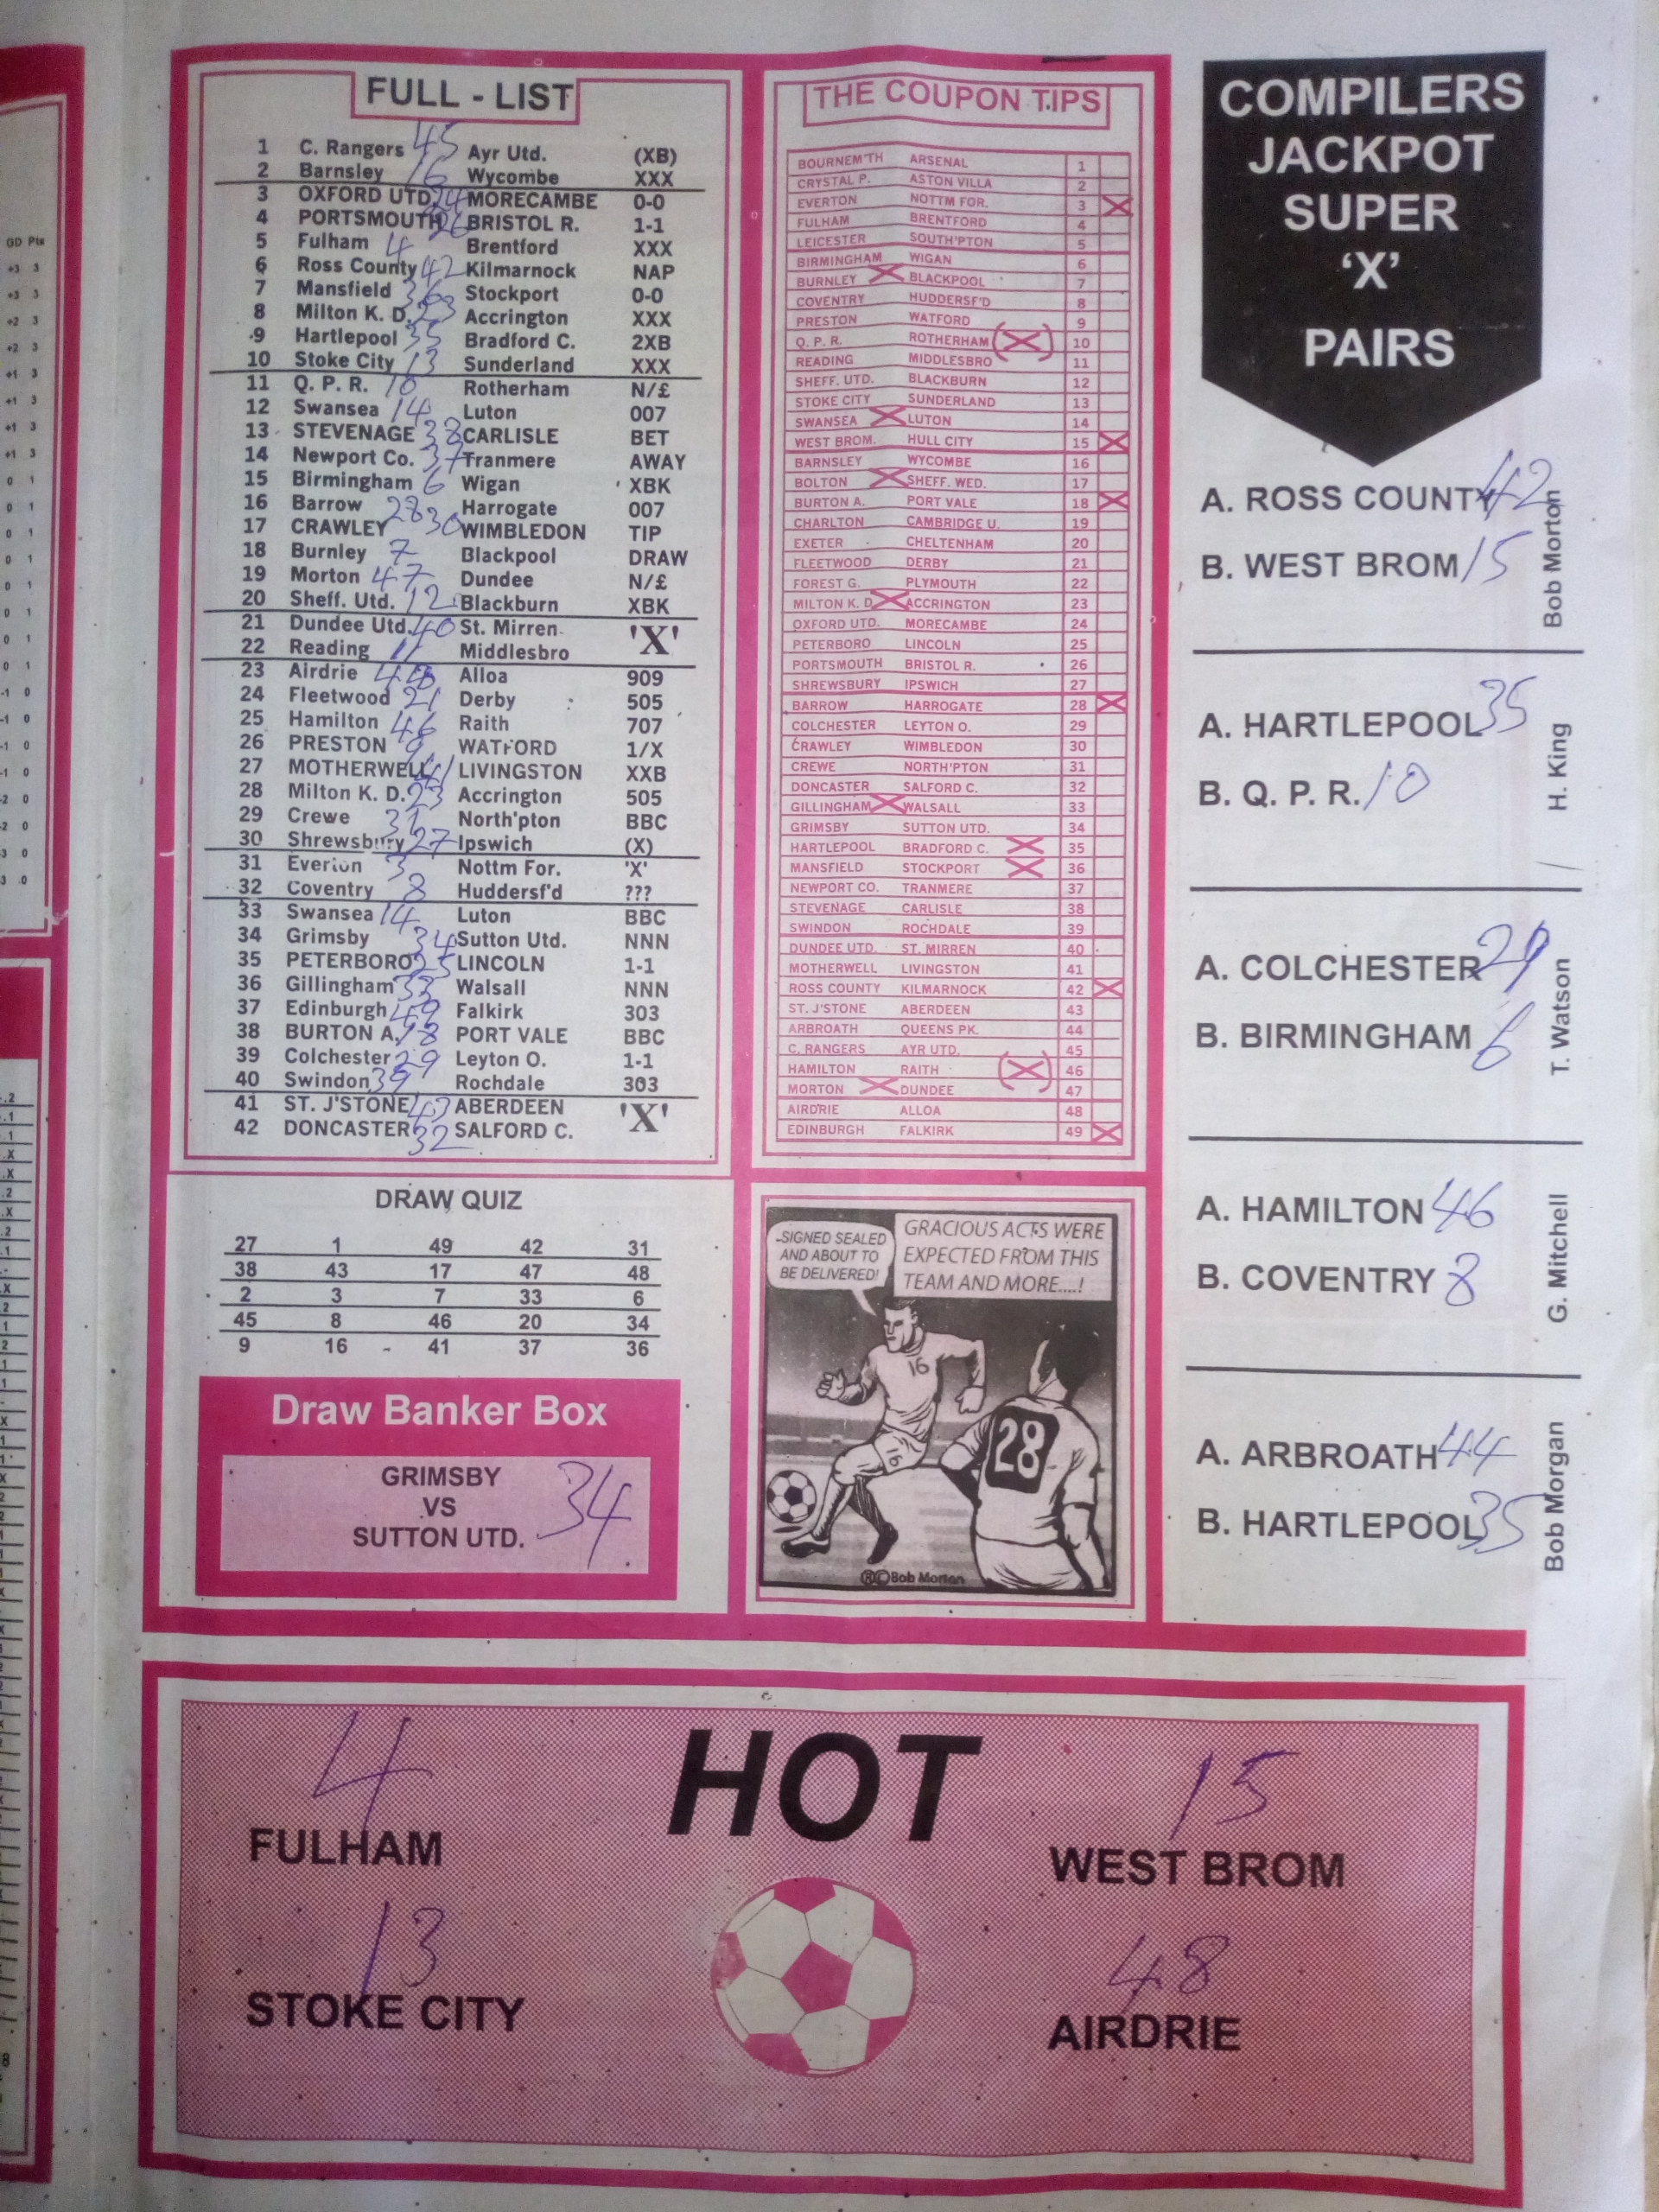 FULL - LIST
1 C. Rangers 45 Ayr Utd. (XB)
2 Barnsley 16 Wycombe XXX
3 OXFORD UTD. 24 MORECAMBE 0-0
4 PORTSMOUTH 26 BRISTOL R. 1-1
5 Fulham 4 Brentford XXX
6 Ross County 42 Kilmarnock NAP
7 Mansfield 36 Stockport 0-0
8 Milton K. D. 23 Accrington XXX
9 Hartlepool 35 Bradford C. 2XB
10 Stoke City 13 Sunderland XXX
11 Q. P. R. 10 Rotherham N/£
12 Swansea 14 Luton 007
13 STEVENAGE 38 CARLISLE BET
14 Newport Co. 37 Tranmere AWAY
15 Birmingham 6 Wigan XBK
16 Barrow 28 Harrogate 007
17 CRAWLEY 30 WIMBLEDON TIP
18 Burnley 7 Blackpool DRAW
19 Morton 47 Dundee N/£
20 Sheff. Utd. 12 Blackburn XBK
21 Dundee Utd. 40 St. Mirren 'X'
22 Reading 11 Middlesbro
23 Airdrie 48 Alloa 909
24 Fleetwood 21 Derby 505
25 Hamilton 46 Raith 707
26 PRESTON 9 WATFORD 1/X
27 MOTHERWELL 41 LIVINGSTON XXB
28 Milton K. D. 23 Accrington 505
29 Crewe 31 North'pton BBC
30 Shrewsbury 27 Ipswich (X)
31 Everton 3 Nottm For. 'X'
32 Coventry 8 Huddersf'd ???
33 Swansea 14 Luton BBC
34 Grimsby 34 Sutton Utd. NNN
35 PETERBORO 25 LINCOLN 1-1
36 Gillingham 33 Walsall NNN
37 Edinburgh 49 Falkirk 303
38 BURTON A. 18 PORT VALE BBC
39 Colchester 29 Leyton O. 1-1
40 Swindon 39 Rochdale 303
41 ST. J'STONE 43 ABERDEEN 'X'
42 DONCASTER 32 SALFORD C.
DRAW QUIZ
27 1 49 42 31
38 43 17 47 48
2 3 7 33 6
45 8 46 20 34
9 16 41 37 36
Draw Banker Box
GRIMSBY
VS
SUTTON UTD. 34
THE COUPON TIPS
BOURNEM'TH ARSENAL 1
CRYSTAL P. ASTON VILLA 2
EVERTON NOTTM FOR. 3 X
FULHAM BRENTFORD 4
LEICESTER SOUTH'PTON 5
BIRMINGHAM WIGAN 6
BURNLEY X BLACKPOOL 7
COVENTRY HUDDERSF'D 8
PRESTON WATFORD 9
Q. P. R. ROTHERHAM (X) 10
READING MIDDLESBRO 11
SHEFF. UTD. BLACKBURN 12
STOKE CITY SUNDERLAND 13
SWANSEA X LUTON 14
WEST BROM. HULL CITY 15 X
BARNSLEY WYCOMBE 16
BOLTON X SHEFF. WED. 17
BURTON A. PORT VALE 18 X
CHARLTON CAMBRIDGE U. 19
EXETER CHELTENHAM 20
FLEETWOOD DERBY 21
FOREST G. PLYMOUTH 22
MILTON K. D. X ACCRINGTON 23
OXFORD UTD. MORECAMBE 24
PETERBORO LINCOLN 25
PORTSMOUTH BRISTOL R. 26
SHREWSBURY IPSWICH 27
BARROW HARROGATE 28 X
COLCHESTER LEYTON O. 29
CRAWLEY WIMBLEDON 30
CREWE NORTH'PTON 31
DONCASTER SALFORD C. 32
GILLINGHAM X WALSALL 33
GRIMSBY SUTTON UTD. 34
HARTLEPOOL BRADFORD C. X 35
MANSFIELD STOCKPORT X 36
NEWPORT CO. TRANMERE 37
STEVENAGE CARLISLE 38
SWINDON ROCHDALE 39
DUNDEE UTD. ST. MIRREN 40
MOTHERWELL LIVINGSTON 41
ROSS COUNTY KILMARNOCK 42 X
ST. J'STONE ABERDEEN 43
ARBROATH QUEENS PK. 44
C. RANGERS AYR UTD. 45
HAMILTON RAITH (X) 46
MORTON X DUNDEE 47
AIRDRIE ALLOA 48
EDINBURGH FALKIRK 49 X
-SIGNED SEALED
AND ABOUT TO
BE DELIVERED!
GRACIOUS ACTS WERE
EXPECTED FROM THIS
TEAM AND MORE....!
16
16
28
®©Bob Morton
COMPILERS
JACKPOT
SUPER
'X'
PAIRS
A. ROSS COUNTY 42
B. WEST BROM 15
Bob Morton
A. HARTLEPOOL 35
B. Q. P. R. 10
H. King
A. COLCHESTER 29
B. BIRMINGHAM 6
T. Watson
A. HAMILTON 46
B. COVENTRY 8
G. Mitchell
A. ARBROATH 44
B. HARTLEPOOL 35
Bob Morgan
HOT
4
FULHAM
15
WEST BROM
13
STOKE CITY
48
AIRDRIE
GD Pts
+3 3
+3 3
+2 3
+2 3
+1 3
+1 3
+1 3
+1 3
0 1
0 1
0 1
0 1
0 1
0 1
0 1
0 1
-1 0
-1 0
-1 0
-1 0
-2 0
-2 0
-3 0
-3 0